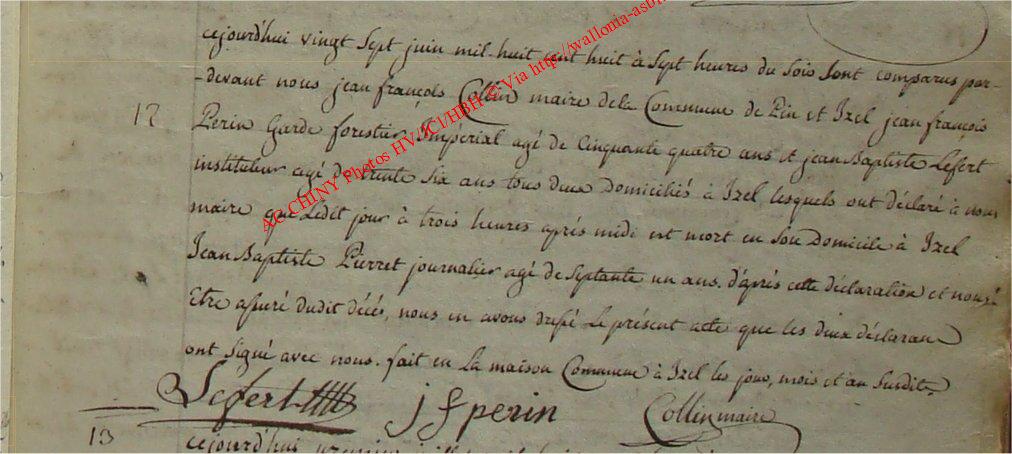 cejourd'hui vingt Sept juin mil-huit cent huit à Sept heures du Soir Sont comparus par-
-devant nous jean françois Collin maire dela Commune de Pin et Izel jean françois
12
Perin Garde forestier Impérial agé de Cinquante quatre ans et jean Baptiste Lefert
instituteur agé de trente Six ans tous deux domiciliés à Izel, lesquels ont déclaré à nous
maire que Ledit jour à trois heures après midi est mort en Son Domicile à Izel
Jean Baptiste Pierret journalier agé de Septante un ans. d'après cette déclaration et nous
Etre assuré dudit décés, nous en avons dressé Le présent acte que les deux déclarans
ont Signé avec nous. fait en La maison Commune à Izel les jour, mois et an Susdits.
Lefert jfperin Collin maire
13
cejourd'hui
AC CHINY Photos HV/JCl/HBH © Via http://wallonia-asbl